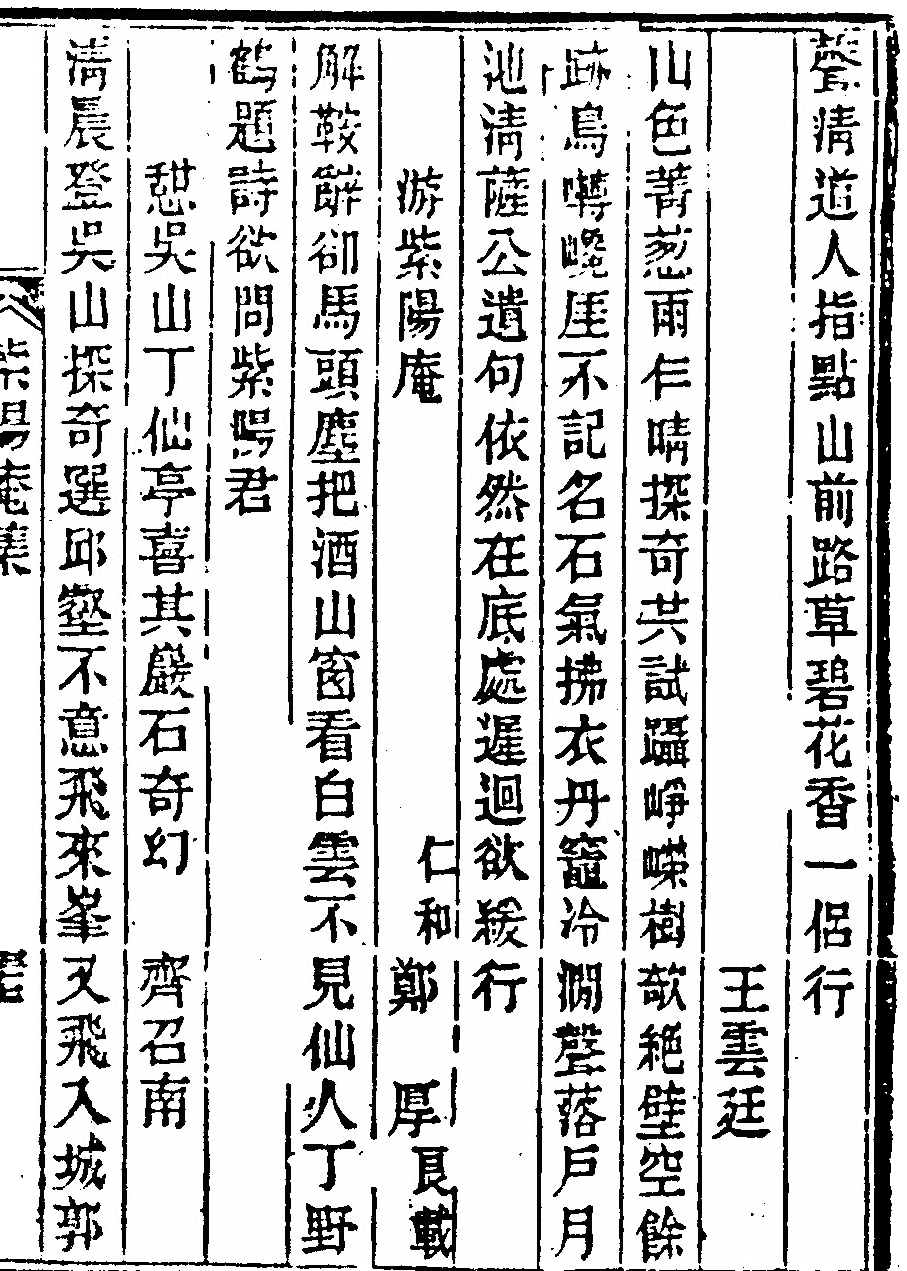 聲清道人指點山前路草碧花香一侶行
王雲廷
山色菁葱雨乍晴探奇共試躡崢嶸樹欹絕壁空餘
跡鳥囀巉厓不記名石氣拂衣丹竈冷澗聲落戶月
池清薩公遺句依然在底處遲迴欲緩行
游紫陽庵 仁和 鄭厚 艮載
解鞍餘卻馬頭塵把酒山窗看白雲不見仙人丁野
鶴題詩欲問紫陽君
憇吳山丁仙亭喜其巖石奇幻 齊召南
清晨登吳山探奇選邱壑不意飛來峯又飛入城郭
紫陽庵集